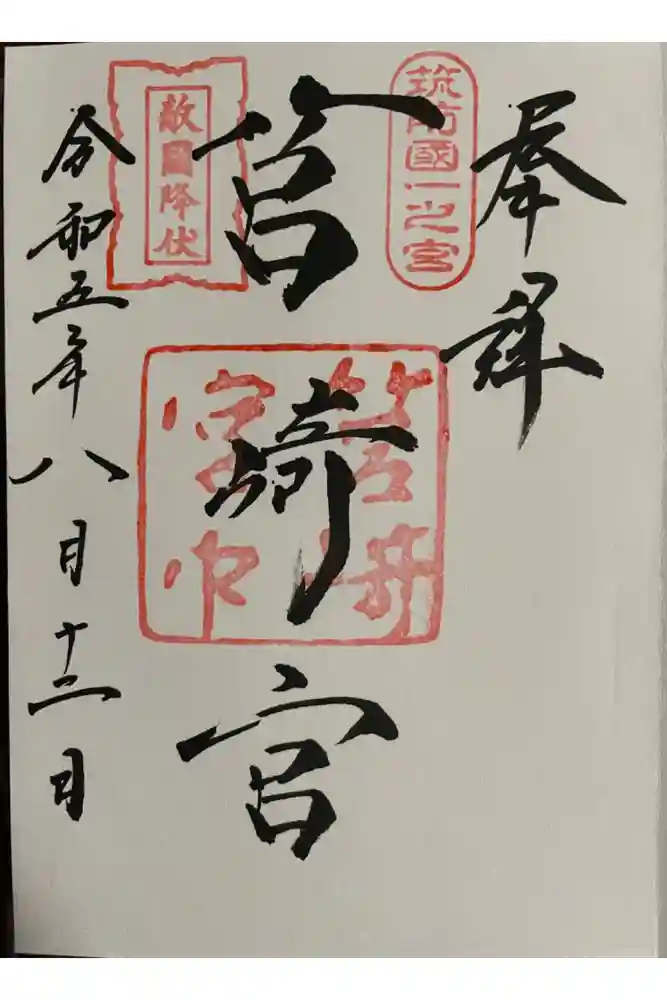 奉拝
筑前國一之宮
筥崎宮
筥崎宮印
敵國降伏
令和五年八月十二日